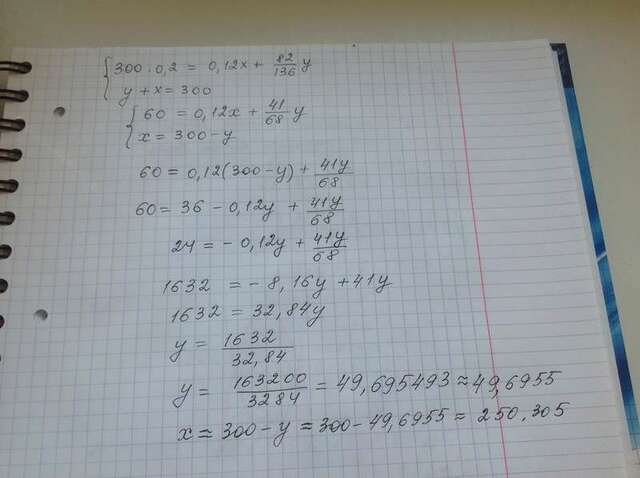 300 · 0,2 = 0,12x + 82/136 y
y + x = 300
60 = 0,12x + 41/68 y
x = 300 - y
60 = 0,12(300 - y) + 41y/68
60 = 36 - 0,12y + 41y/68
24 = - 0,12y + 41y/68
1632 = - 8,16y + 41y
1632 = 32,84y
y = 1632/32,84
y = 163200/3284 = 49,695493 ≈ 49,6955
x = 300 - y ≈ 300 - 49,6955 ≈ 250.305